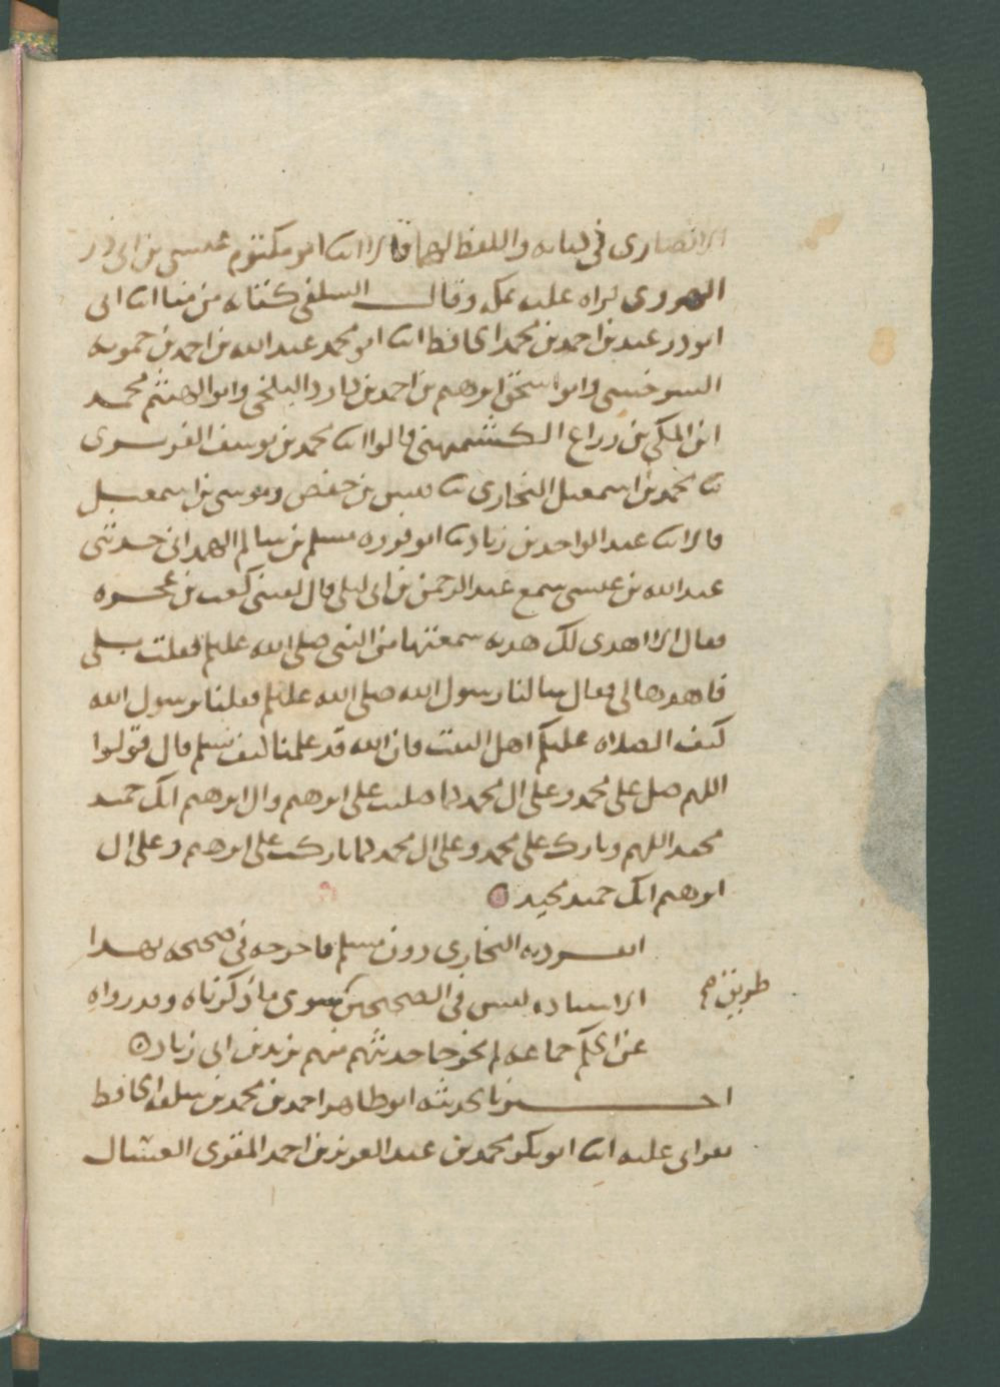 الانصاري في كتابه واللفظ لهما قالا انا ابو مكتوم عيسى بن ابي ذر
الهروي قراه عليه بمكه وقال السلفي كتابه من منا انا ابي
ابو ذر عبد بن احمد بن محمد الحافظ انا ابو محمد عبد الله بن احمد بن حمويه
السرخسي وابو اسحق ابرهيم بن احمد بن داود البلخي وابو الهيثم محمد
ابن المكي بن زراع الكشميهني قالوا انا محمد بن يوسف الفربري
ثنا محمد بن اسمعيل البخاري ثنا قيس بن حفص وموسى بن اسمعيل
قالا ثنا عبد الواحد بن زياد ثنا ابو فروه مسلم بن سالم الهمداني حدثني
عبد الله بن عيسى سمع عبد الرحمن بن ابي ليلى قال لقيني كعب بن عجره
فقال الا اهدي لك هديه سمعتها من النبي صلى الله عليه وسلم فقلت بلى
فاهدها لي فقال سالنا رسول الله صلى الله عليه وسلم فقلنا يرسول الله
كيف الصلاه عليكم اهل البيت فان الله قد علمنا كيف نسلم قال قولوا
اللهم صل على محمد وعلى ال محمد كما صليت على ابرهيم وال ابرهيم انك حميد
مجيد اللهم وبارك على محمد وعلى ال محمد كما باركت على ابرهيم وعلى ال
ابرهيم انك حميد مجيد
انفرد به البخاري دون مسلم فاخرجه في صحيحه بهذا
الاسناد، ليس في الصحيحين سوى ما ذكرناه وقد رواه
طريق
عن الحكم جماعه لم يخرجا حديثهم منهم يزيد بن ابي زياد
اخبرنا بحديثه ابو طاهر احمد بن محمد بن سلفه الحافظ
بقراي عليه انا ابو بكر محمد بن عبد العزيز بن احمد المقري العسال